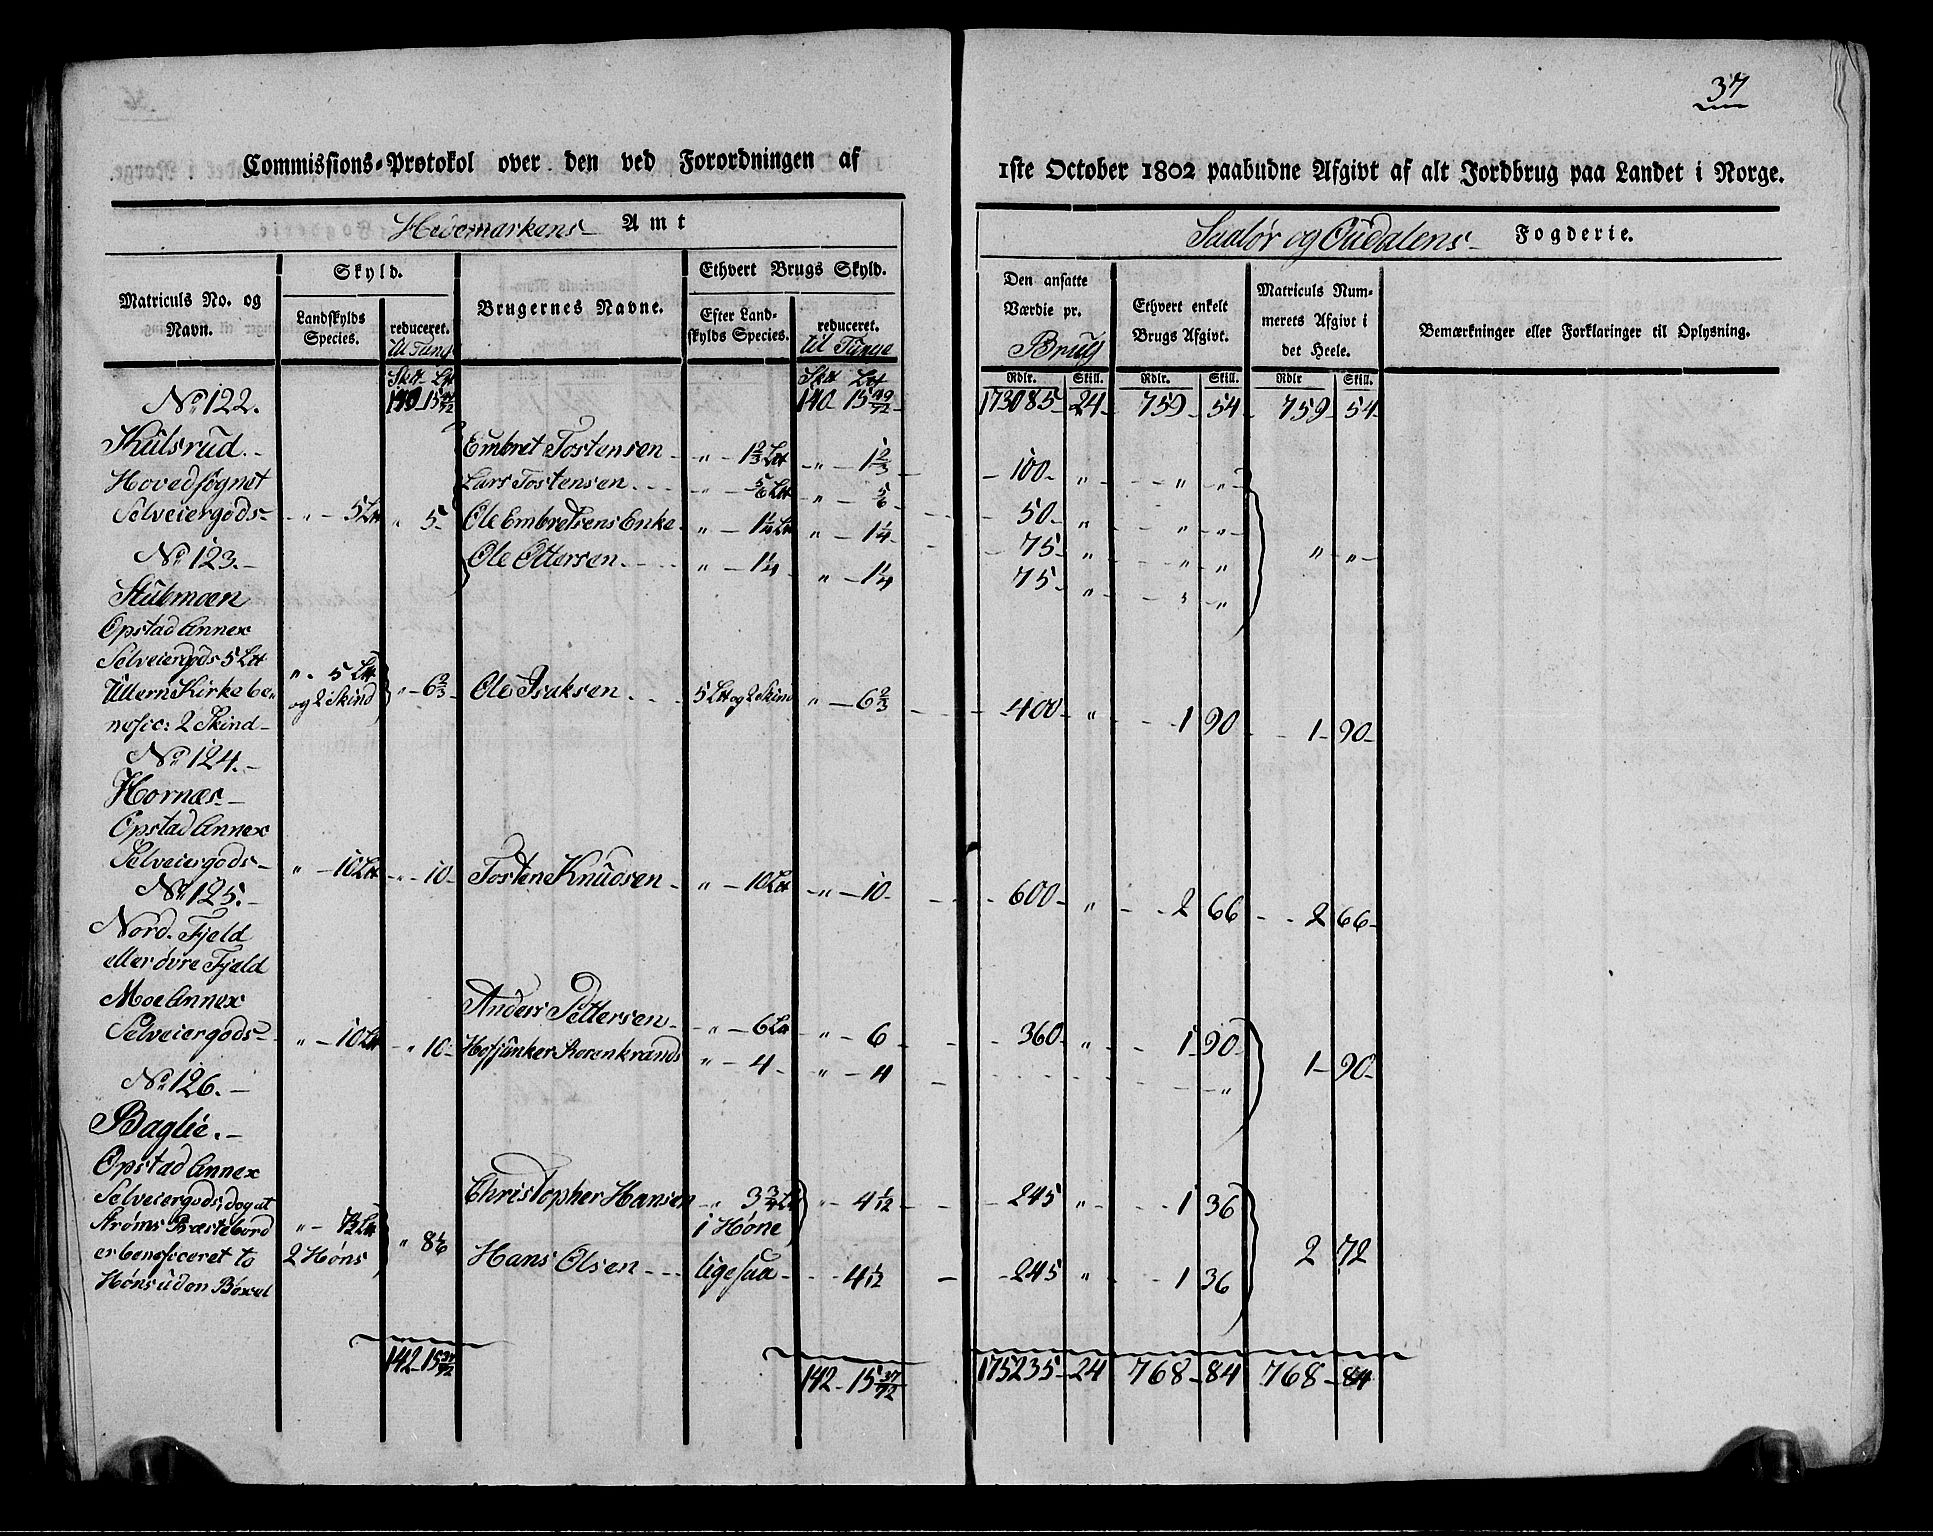 37
Commissions-Protokol over den ved Forordningen af 1ste October 1802 paabudne Afgivt af alt Jordbrug paa Landet i Norge.
Hedemarkens Amt
Soelør og Oudalens Fogderie.
Matriculs No. og Navn.
Skyld.
Landskylds Species.
reduceret.
til Tunge
Brugernes Navne.
Ethvert Brugs Skyld.
Efter Landskylds Species.
reduceret.
til Tunge
Den ansatte Værdie pr.
Brug
Ethvert enkelt Brugs Afgivt.
Matriculs Nummerets Afgivt i det Heele.
Bemærkninger eller Forklaringer til Oplysning.
Rdlr. Skill. Rdlr. Skill. Rdlr Skill.
No 122. 173085 - 24 - 759 - 54 - 759 - 54
Kulsrud. Embret Tostensen - " - 1 2/3 Ltt " - 1 2/3 - 100 - " " "
Hovedsognet Lars Tostensen " - 5/6 Ltt " 5/6 - 50 - " " "
Selveiergods - " - 5 Ltt " 5 - Ole Embretsens Enke " - 1 1/4 Ltt " - 1 1/4 - 75 - " " " " "
No 123. Ole Ottersen " - 1 1/4 " - 1 1/4 75 " " "
Stubmoen
Opstad Annex
Selveiergods 5 Ltt " - 5 Ltt
Ullern Kirke be- og 2 Skind " - 6 2/3 - Ole Isaksen 5 Ltt og 2 Skind " - 6 2/3 - 400 - " 1 90 1 - 90
nefic: 2 Skind
No 124.
Hornæs
Opstad Annex
Selveiergods " - 10 Ltt - " - 10 - Tosten Knudsen - " - 10 Ltt - " - 10 - 600 - " 2 66 2 66
No 125.
Nord. Fjeld
eller øvre Fjeld
Moe Annex Anders Pettersen - " - 6 Ltt " - 6 360 - " 1 - 90
Selveiergods - " - 10 Ltt " 10 - Hofjunker Rosenkrands " - 4 - " - 4 " 1 - 90
No 126.
Baglie.
Opstad Annex
Selveiergods, dog at Christopher Hansen " 3 3/4 Ltt " - 4 1/12 - 245 " 1 36
Strøms Præstebord 1 Høne
er beneficeret to 2 Høns " 8 1/6 Hans Olsen ligesaa - 4 1/12 - 245 " 1 36 2 72
Høns uden Bøxel
142 - 15 37/72 142 - 15 37/72 175235 - 24 768 - 84 768 - 84